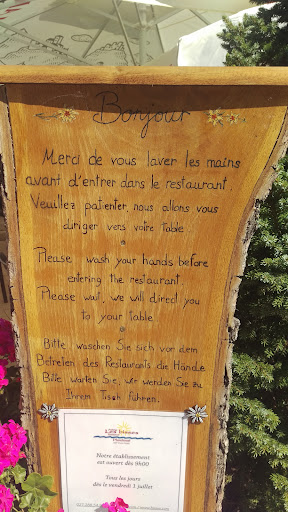 Bonjour
Merci de vous laver les mains
avant d'entrer dans le restaurant.
Veuillez patienter, nous allons vous
diriger vers votre table
Please wash your hands before
entering the restaurant
Please wait, we will direct you
to your table
Bitte waschen Sie sich vor dem
Betreten des Restaurants die Hände.
Bitte warten Sie, wir werden Sie zu
Ihrem Tisch führen.
Notre établissement
est ouvert dès 9h00
Tous les jours
dès le vendredi 3 juillet